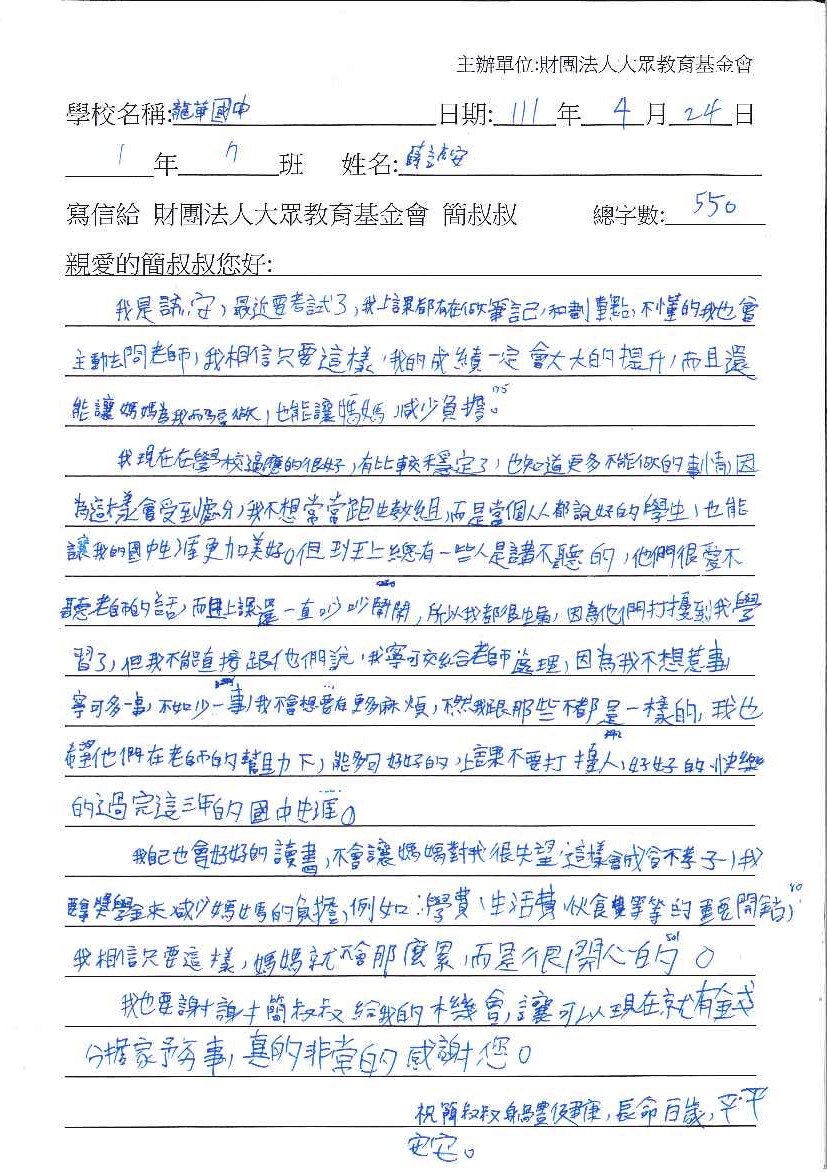 主辦單位:財團法人大眾教育基金會
學校名稱:龍華國中 日期: 111 年 4 月 24 日
1 年 7 班 姓名: 安
寫信給 財團法人大眾教育基金會 簡叔叔 總字數: 550
親愛的簡叔叔您好:
我是 安,最近要考試了,我上課都有在做筆記,和劃重點,不懂的我也會
主動去問老師,我相信只要這樣,我的成績一定會大大的提升,而且還
能讓媽媽為我而 ,也能讓媽媽減少負擔。 75
我現在在學校適應的很好,有比較穩定了,也知道更多不能做的事情,因
為這樣會受到處分,我不想常常跑生教組,而是當個人人都說好的學生,也能
讓我的國中生涯更加美好。但班上總有一些人是講不聽的,他們很愛不
聽老師的話,而且上課還一直吵吵鬧鬧,所以我都很生氣,因為他們打擾到我學
習了,但我不能直接跟他們說,我寧可交給老師處理,因為我不想惹事
寧可多一事,不如少一事,我不會想要有更多麻煩,不然我跟那些 都是一樣的,我也
希望他們在老師的幫助下,能夠好好的上課不要打擾人,好好的快樂
的過完這三年的國中生涯。
我自己也會好好的讀書,不會讓媽媽對我很失望,這樣會成令不孝子,我
要拿獎學金來減少媽媽的負擔,例如:學費、生活費、伙食費等等的重要開銷,
我相信只要這樣,媽媽就不會那麼累,而是很開心的。
我也要謝謝簡叔叔給我的機會,讓可以現在就有錢
分擔家務事,真的非常的感謝您。
祝簡叔叔身體健康,長命百歲,平平
安安。